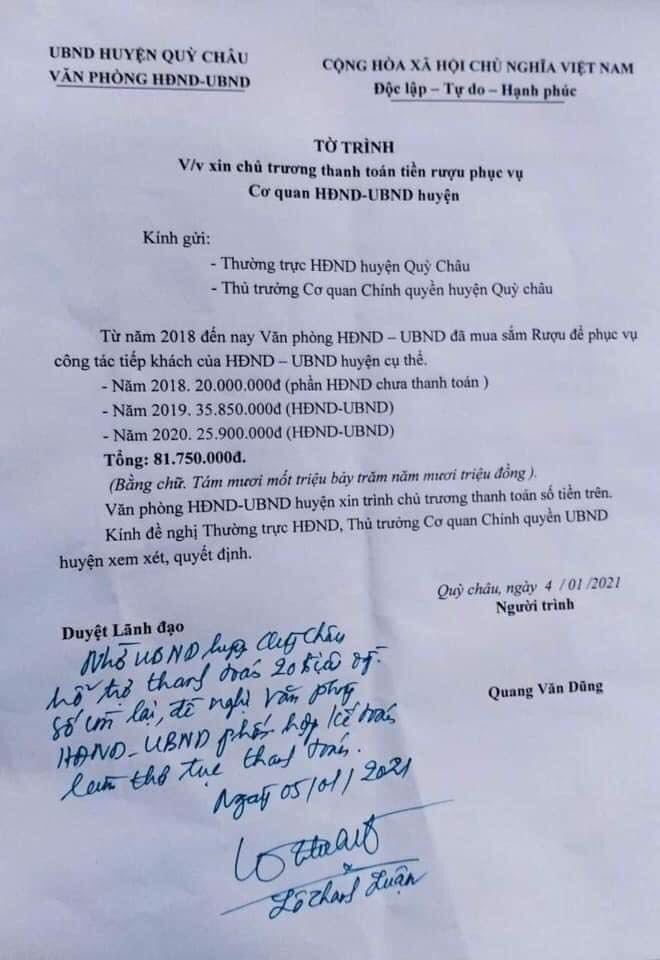 UBND HUYỆN QUỲ CHÂU
VĂN PHÒNG HĐND-UBND
CỘNG HÒA XÃ HỘI CHỦ NGHĨA VIỆT NAM
Độc lập – Tự do – Hạnh phúc
TỜ TRÌNH
V/v xin chủ trương thanh toán tiền rượu phục vụ
Cơ quan HĐND-UBND huyện
Kính gửi:
- Thường trực HĐND huyện Quỳ Châu
- Thủ trưởng Cơ quan Chính quyền huyện Quỳ châu
Từ năm 2018 đến nay Văn phòng HĐND – UBND đã mua sắm Rượu để phục vụ
công tác tiếp khách của HĐND – UBND huyện cụ thể.
- Năm 2018. 20.000.000đ (phần HĐND chưa thanh toán )
- Năm 2019. 35.850.000đ (HĐND-UBND)
- Năm 2020. 25.900.000đ (HĐND-UBND)
Tổng: 81.750.000đ.
(Bằng chữ. Tám mươi mốt triệu bảy trăm năm mươi triệu đồng ).
Văn phòng HĐND-UBND huyện xin trình chủ trương thanh toán số tiền trên.
Kính đề nghị Thường trực HĐND, Thủ trưởng Cơ quan Chính quyền UBND
huyện xem xét, quyết định.
Quỳ châu, ngày 4 /01/2021
Người trình
Quang Văn Dũng
Duyệt Lãnh đạo
Nhờ UBND huyện Quỳ Châu
hỗ trợ thanh toán 20 triệu
số còn lại, đề nghị văn phòng
HĐND-UBND phối hợp kế toán
làm thủ tục thanh toán.
Ngày 05/01/2021
Lô Thanh Luận